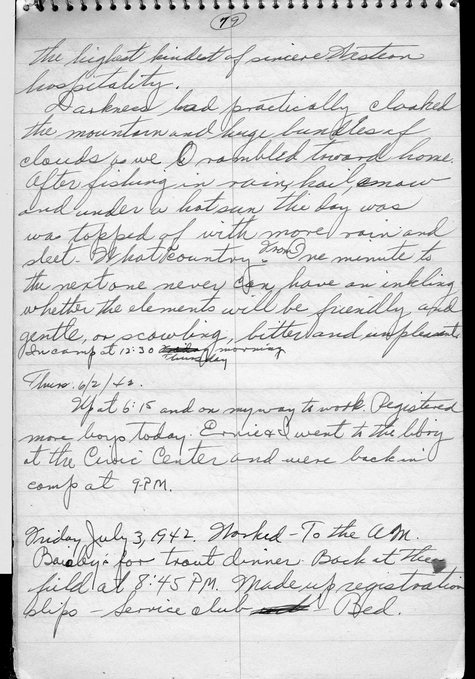 79
the highest kindest of sincere Western
hospitality.
Darkness had practically cloaked
the mountain and huge bundles of
clouds as we rambled toward home.
After fishing in rain, hail, snow
and under a hot sun the day was
was topped of with more rain and
sleet. What country. From One minute to
the next one never can have an inkling
whether the elements will be friendly and
gentle, or scowling, bitter and unpleasant.
In camp at 12:30 Thursday morning
Thurs. 6/2/42.
Up at 6:15 and on my way to work. Registered
more boys today. Ernie & I went to the libry
at the Civic Center and were back in
camp at 9 PM.
Friday July 3, 1942. Worked - To the A.M.
for trout dinner. Back at the
field at 8:45 PM. Made up registration
slips - Service club - Bed.